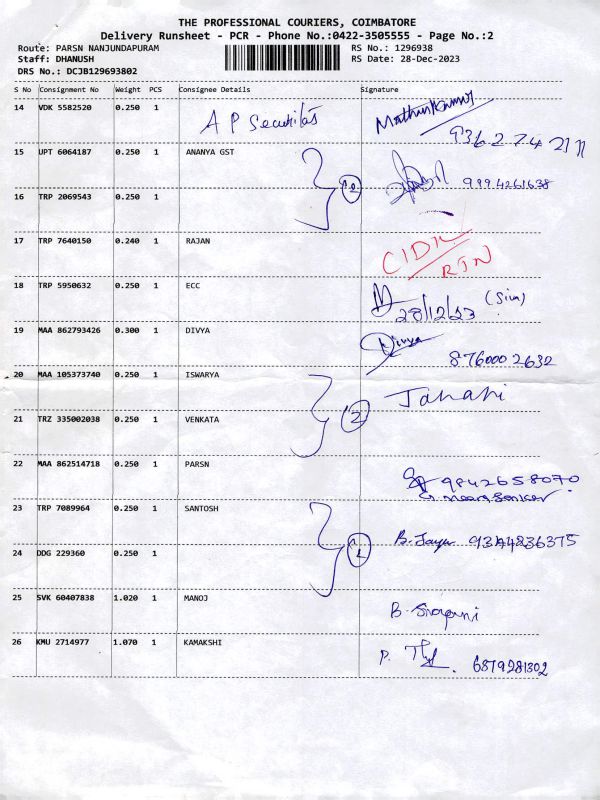 THE PROFESSIONAL COURIERS, COIMBATORE
Delivery Runsheet - PCR - Phone No.:0422-3505555 - Page No.:2
Route: PARSN NANJUNDAPURAM RS No.: 1296938
Staff: DHANUSH RS Date: 28-Dec-2023
DRS No.: DCJB129693802
S No Consignment No Weight PCS Consignee Details Signature
14 VDK 5582520 0.250 1 A P Securities Mathan Kumar
93627 42171
15 UPT 6064187 0.250 1 ANANYA GST 2 9994261638
16 TRP 2069543 0.250 1
17 TRP 7640150 0.240 1 RAJAN
RTN
18 TRP 5950632 0.250 1 ECC (Siva)
28/12/23
19 MAA 862793426 0.300 1 DIVYA Divya
8760002632
20 MAA 105373740 0.250 1 ISWARYA Janani
21 TRZ 335002038 0.250 1 VENKATA 2
22 MAA 862514718 0.250 1 PARSN 9842658070
23 TRP 7089964 0.250 1 SANTOSH B. Jaya 9344836375
24 DDG 229360 0.250 1
25 SVK 60407838 1.020 1 MANOJ B.
26 KMU 2714977 1.070 1 KAMAKSHI P.
6879281302